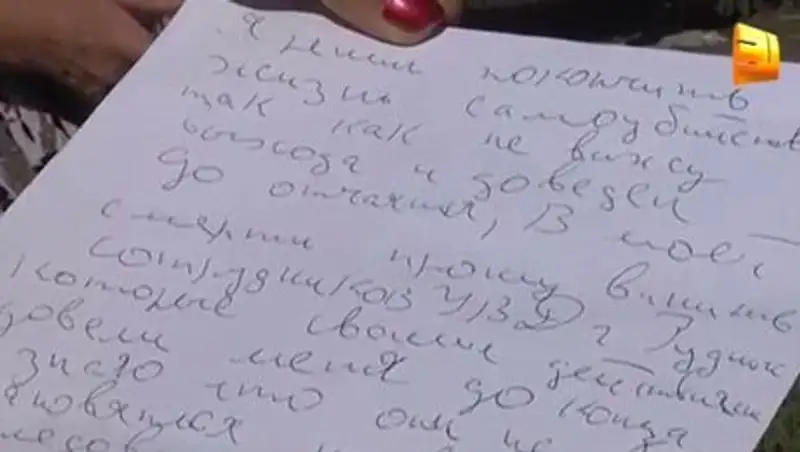 Я решил покончить
жизнь самоубийством
так как не вижу
выхода и доведен
до отчаяния, В моей
смерти прошу винить
сотрудников УВД г Рудном
которые своими действиями
довели меня до конца
знаю что они не